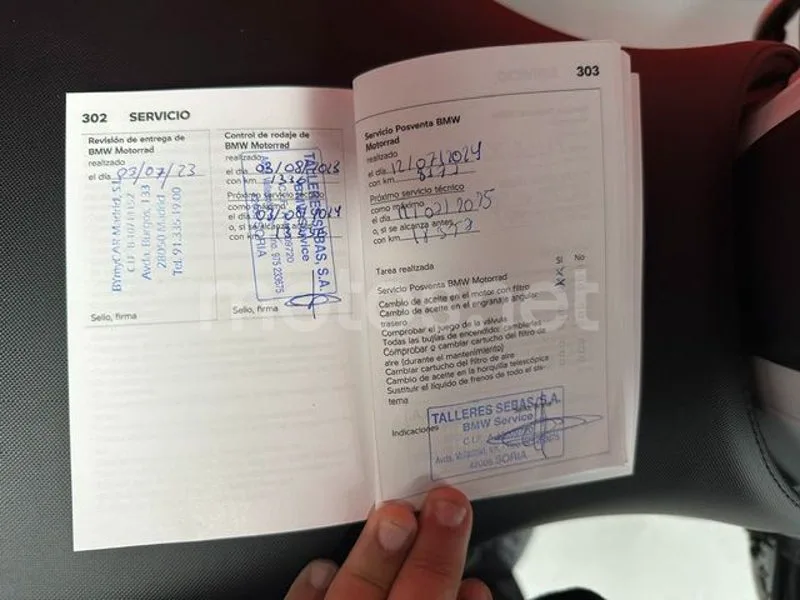 302 SERVICIO
Revisión de entrega de
BMW Motorrad
realizado
el día 03/07/23
BYmyCAR Madrid, S.L.
Avda. Burgos, 133
28050 Madrid
Tel. 91 335 19 00
Sello, firma
Control de rodaje de
BMW Motorrad
realizado
el día 03/08/2023
con km
Próximo servicio técnico
como máximo
el día 03/08/2024
o, si se alcanza antes,
con km
TALLERES SEBAS, S.A.
BMW Service
SORIA
Sello, firma
303
Servicio Posventa BMW
Motorrad
realizado
el día 12/07/2024
con km
Próximo servicio técnico
como máximo
el día
o, si se alcanza antes,
con km
Tarea realizada
Sí No
Servicio Posventa BMW Motorrad
Cambio de aceite en el motor con filtro
Cambio de aceite en el engranaje angular
trasero
Comprobar el juego de la válvula
Todas las bujías de encendido: cambiarlas
Comprobar o cambiar cartucho del filtro de
aire (durante el mantenimiento)
Cambiar cartucho del filtro de aire
Cambio de aceite en la horquilla telescópica
Sustituir el líquido de frenos de todo el sis-
tema
Indicaciones
TALLERES SEBAS, S.A.
BMW Service
C.I.F.
SORIA
motos.net